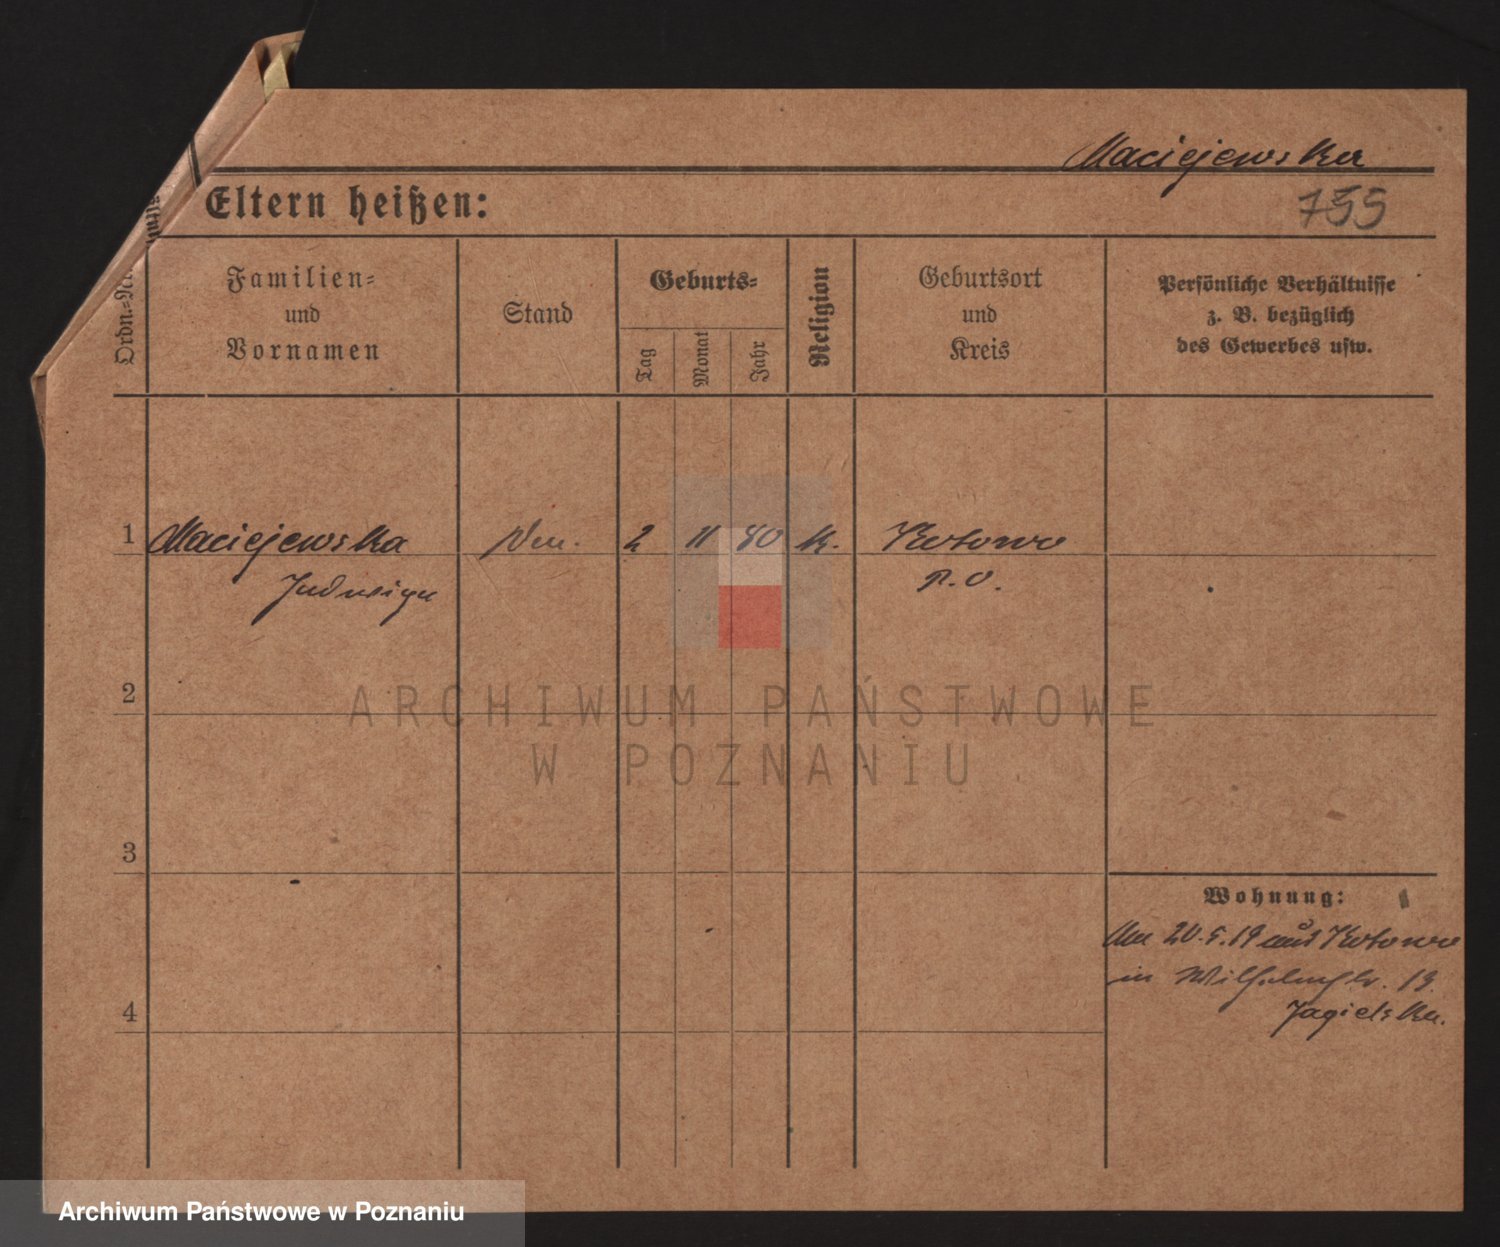 Maciejewska
755
Eltern heißen:
Ordn.-Nr.
Familien-
und
Vornamen
Stand
Geburts-
Tag
Monat
Jahr
Religion
Geburtsort
und
Kreis
Persönliche Verhältnisse
z. B. bezüglich
des Gewerbes usw.
1 Maciejewska 2 11 80 k. Kotowo
Jadwiga P. O.
2
ARCHIWUM PAŃSTWOWE
W POZNANIU
3
Wohnung:
Am 20.5.19 aus Kotowo
in Wilhelmstr. 19.
4
Jagielska.
Archiwum Państwowe w Poznaniu